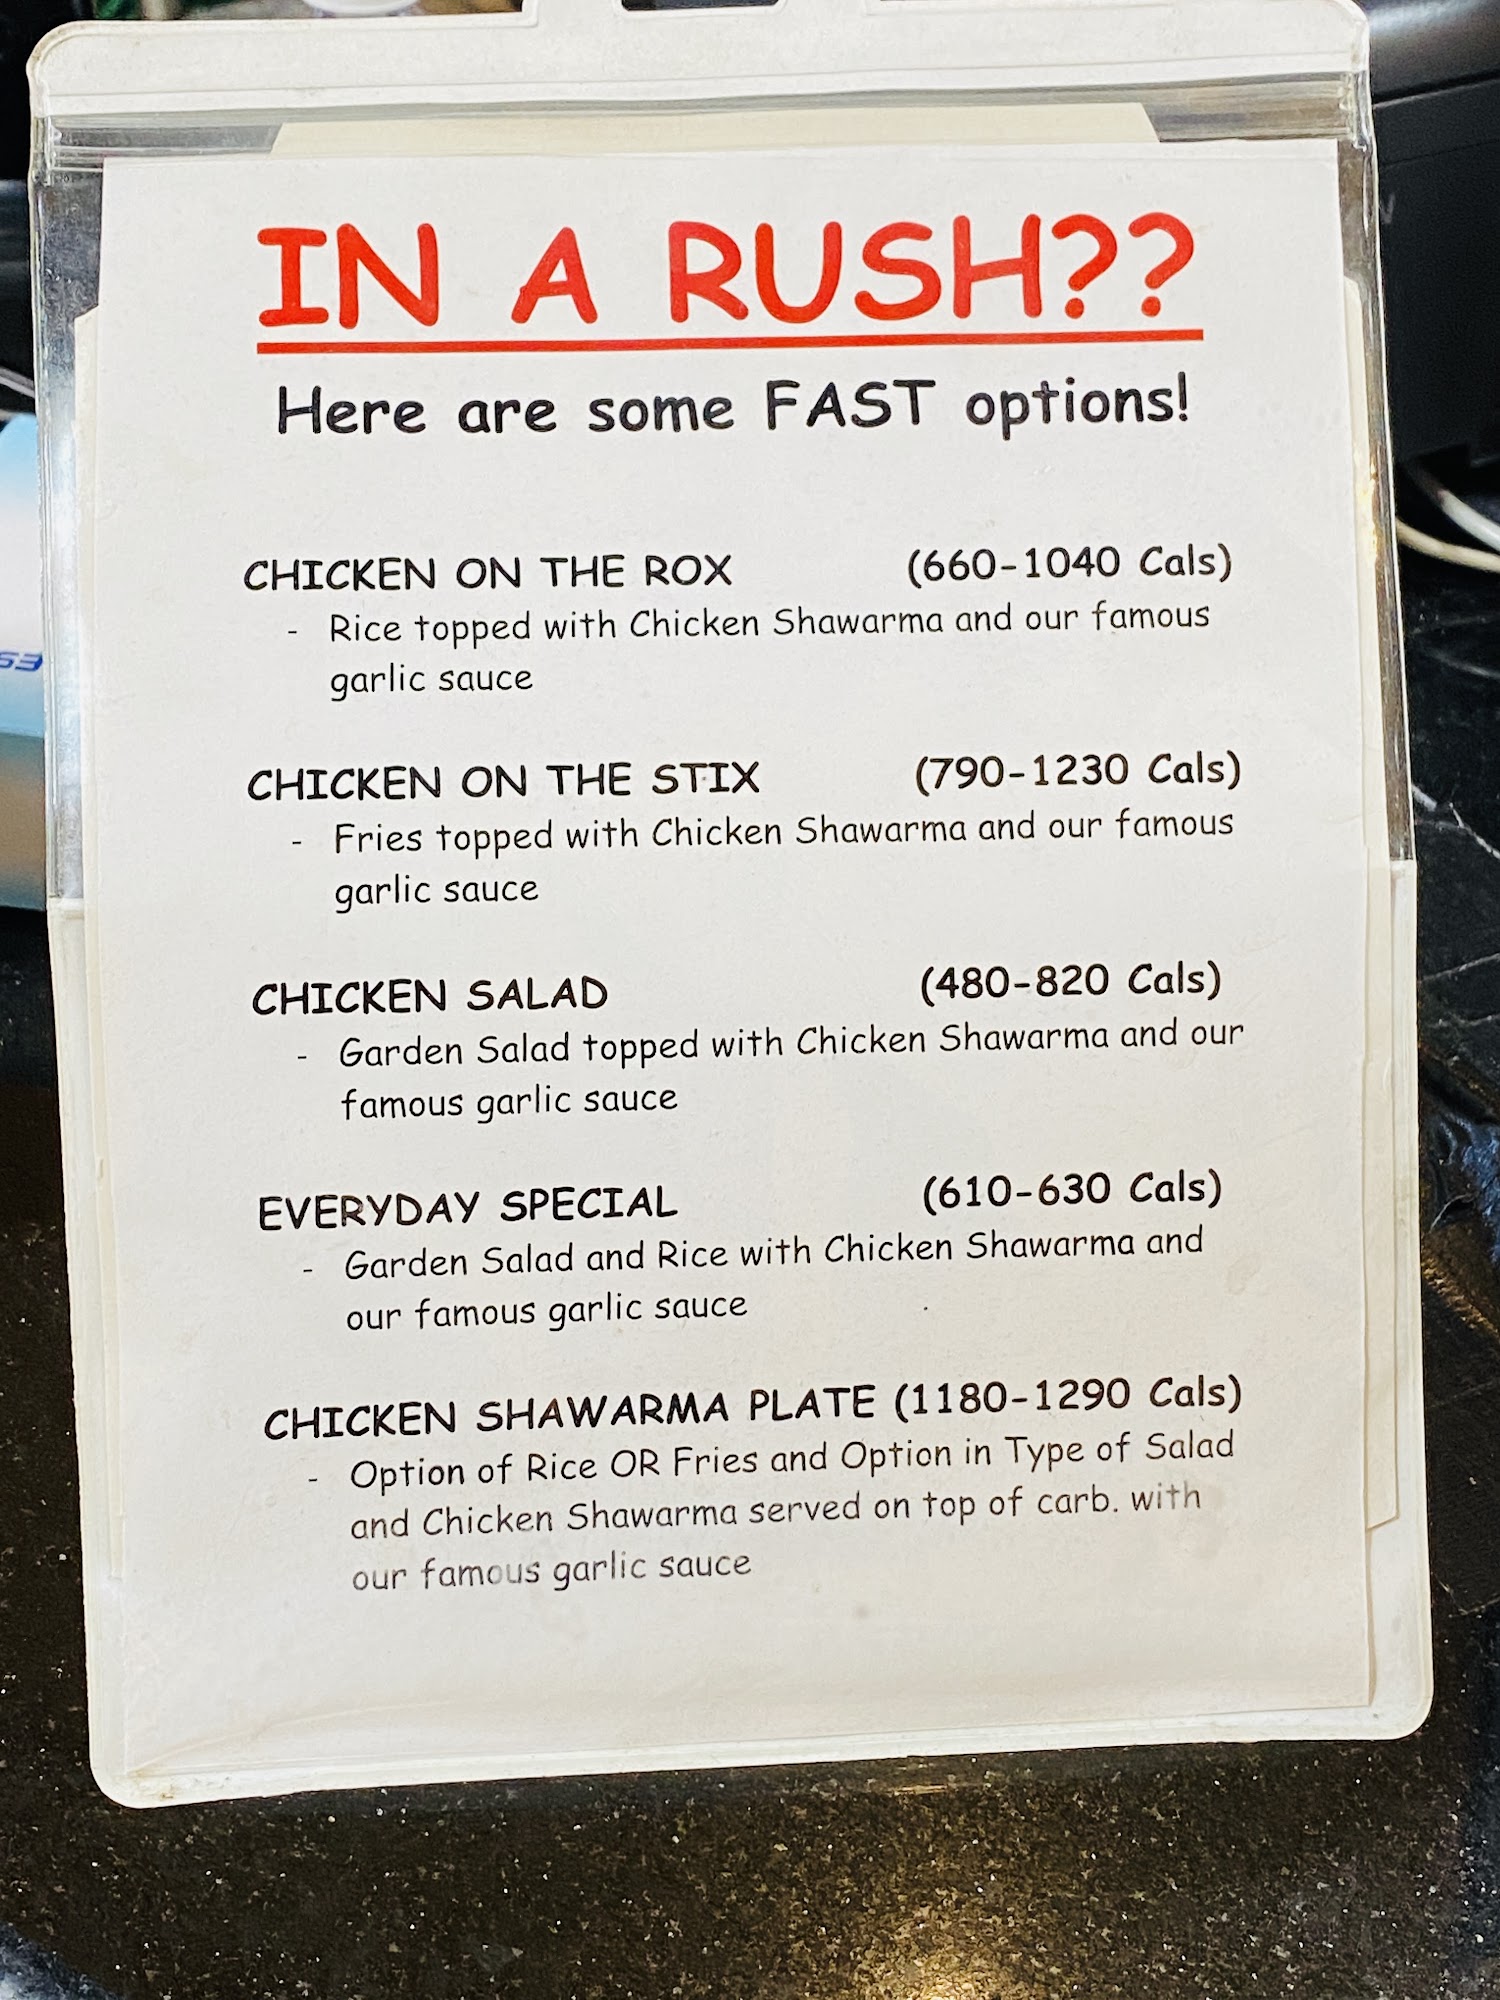 IN A RUSH??
Here are some FAST options!
CHICKEN ON THE ROX (660-1040 Cals)
- Rice topped with Chicken Shawarma and our famous
garlic sauce
CHICKEN ON THE STIX (790-1230 Cals)
- Fries topped with Chicken Shawarma and our famous
garlic sauce
CHICKEN SALAD (480-820 Cals)
- Garden Salad topped with Chicken Shawarma and our
famous garlic sauce
EVERYDAY SPECIAL (610-630 Cals)
- Garden Salad and Rice with Chicken Shawarma and
our famous garlic sauce
CHICKEN SHAWARMA PLATE (1180-1290 Cals)
- Option of Rice OR Fries and Option in Type of Salad
and Chicken Shawarma served on top of carb. with
our famous garlic sauce